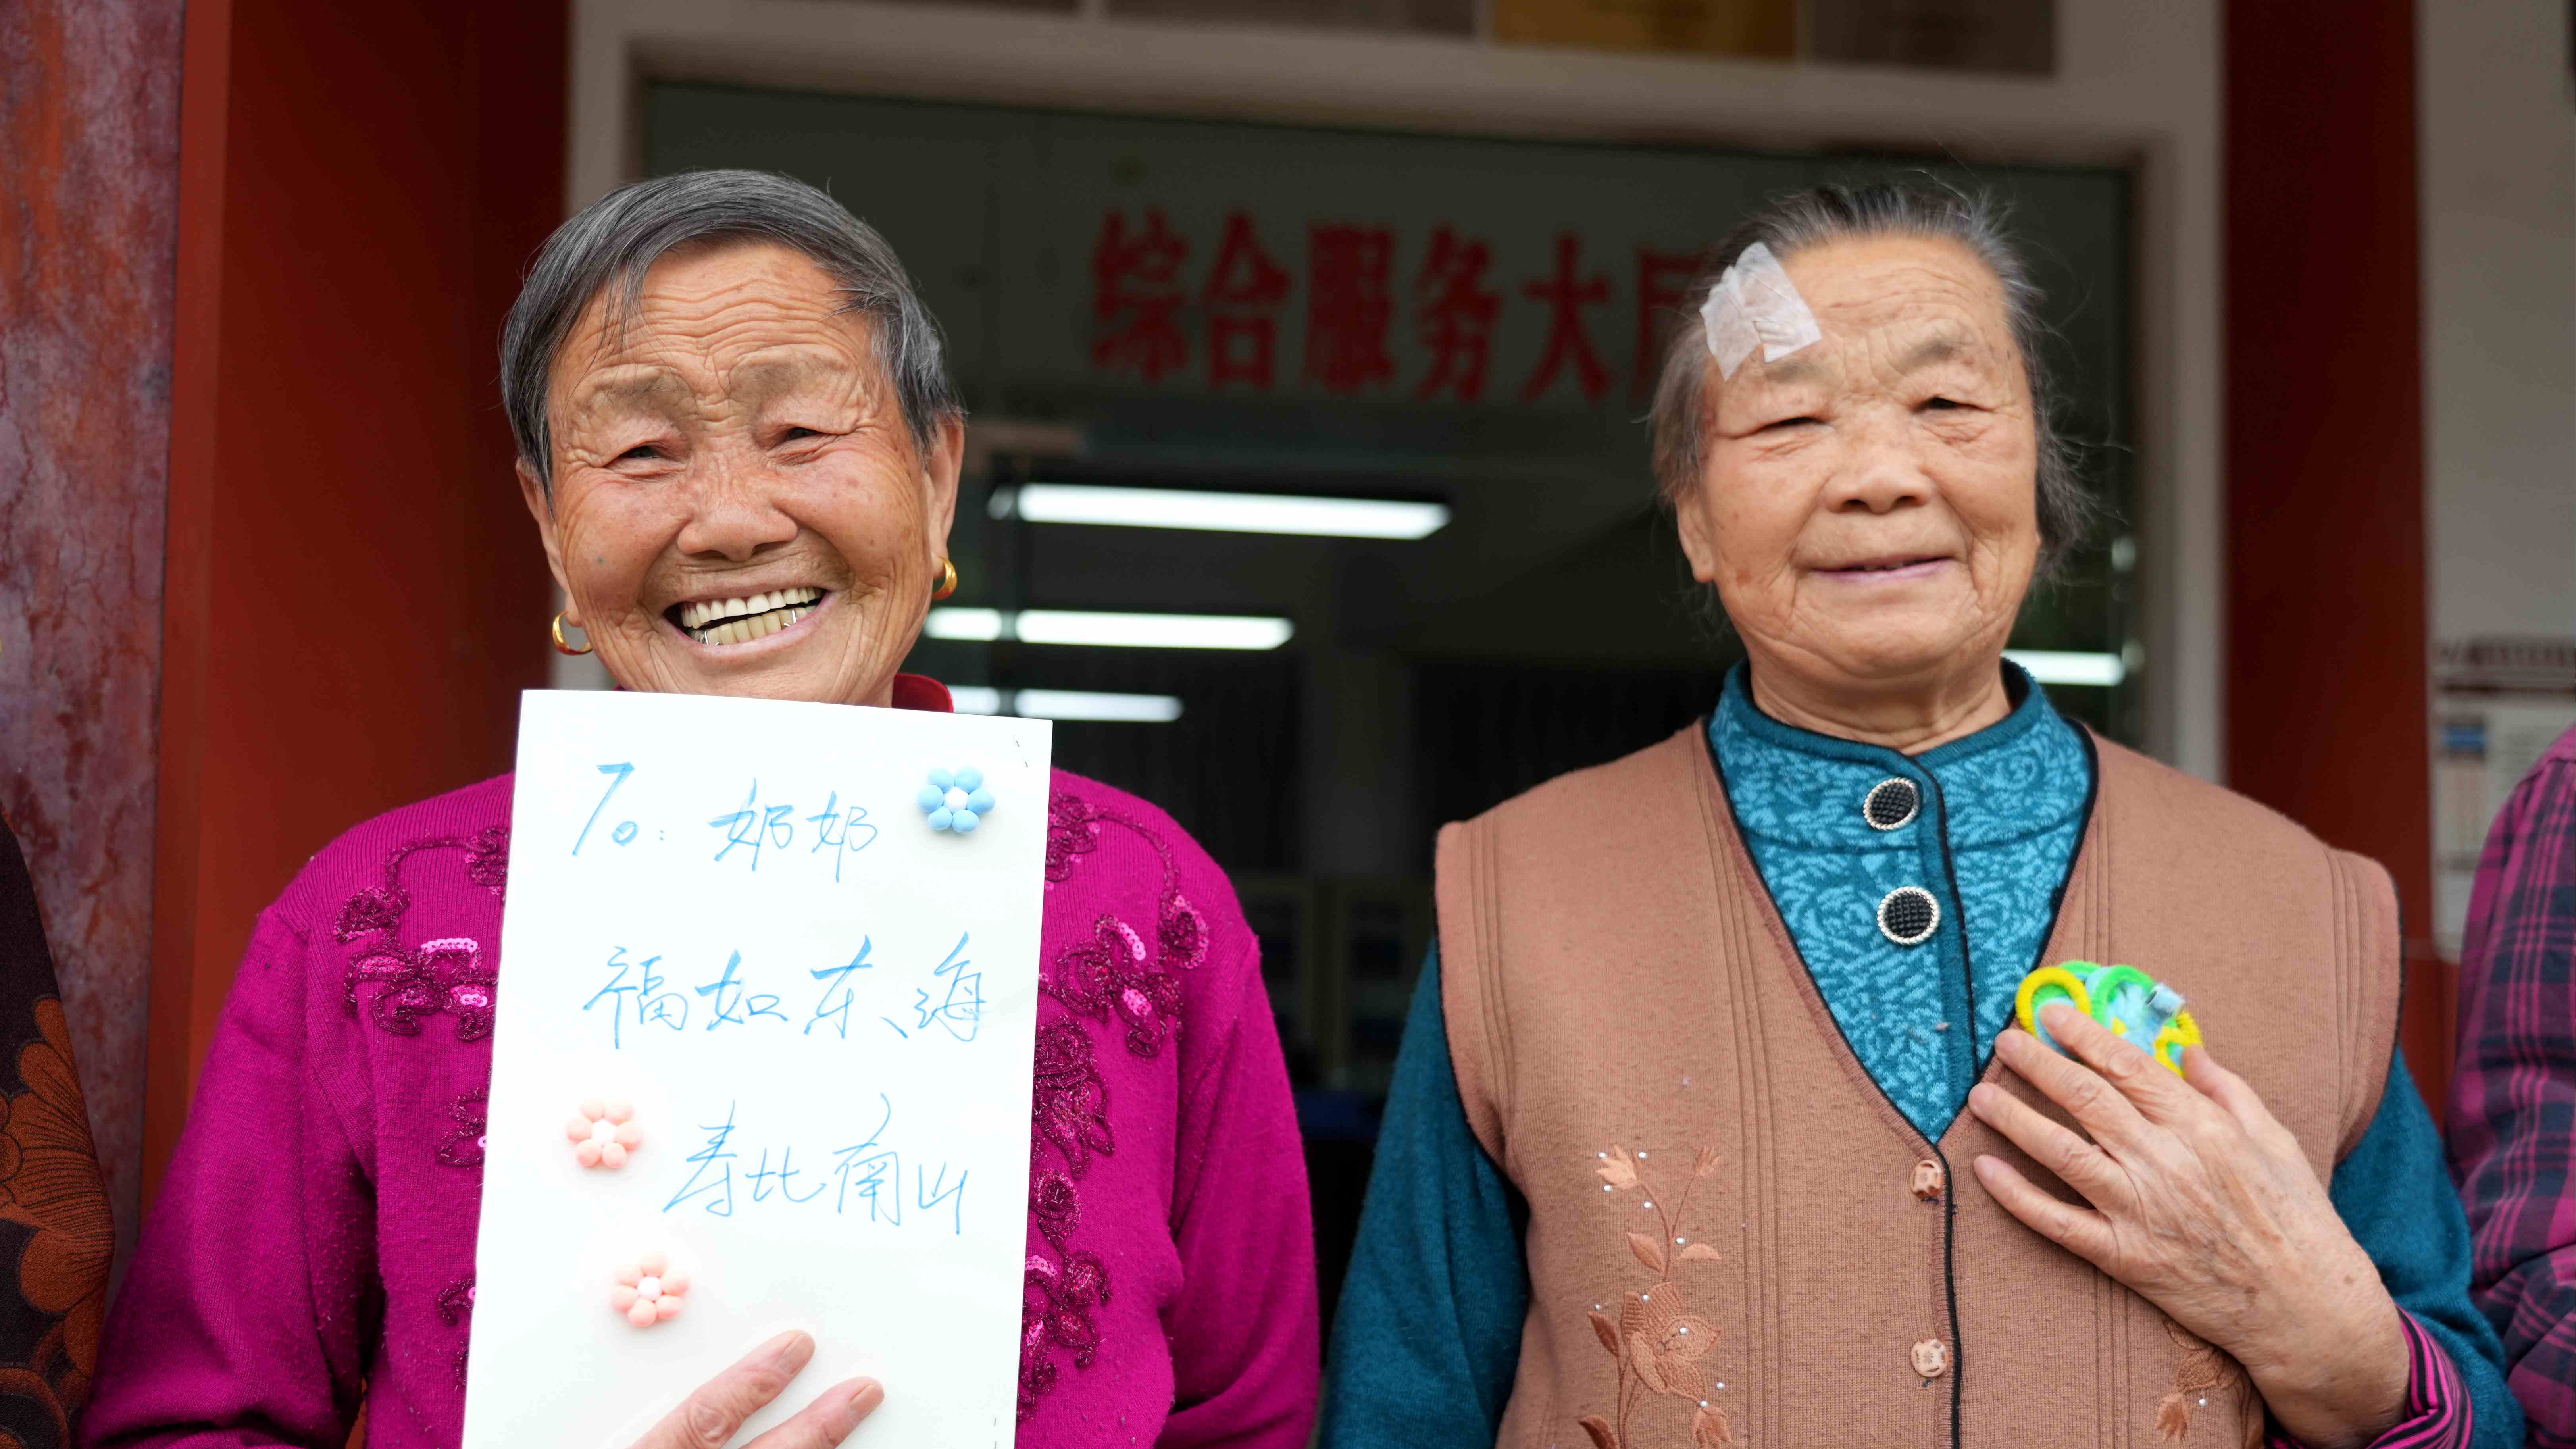 综合服务大厅
To: 奶奶
福如东海
寿比南山